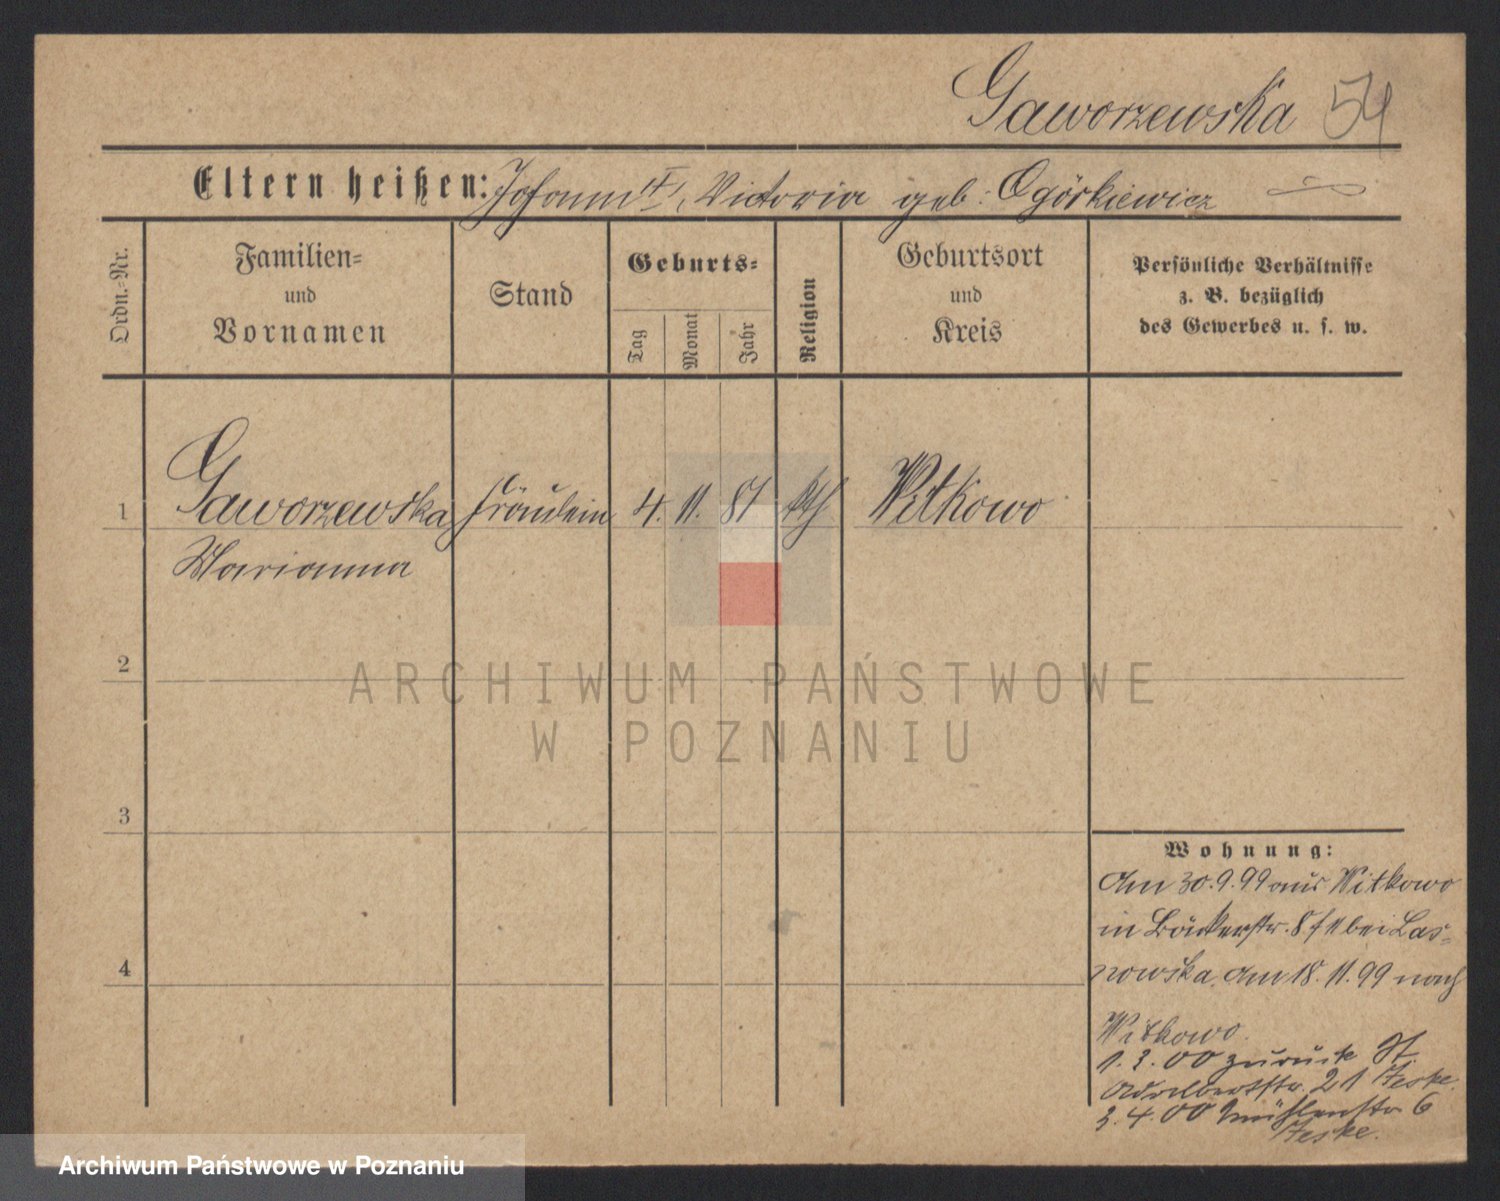 Gaworzewska 54
Eltern heißen: Johann †, Victoria geb: Ogórkiewicz
Ordn.-Nr.
Familien-
und
Vornamen
Stand
Geburts-
Tag
Monat
Jahr
Religion
Geburtsort
und
Kreis
Persönliche Verhältnisse
z. B. bezüglich
des Gewerbes u. s. w.
1 Gaworzewska Fräulein 4. 11. 81 kth Witkowo
Marianna
2
ARCHIWUM PAŃSTWOWE
W POZNANIU
3
4
Wohnung:
Am 30.9.99 aus Witkowo
in Bäckerstr. 8 bei Las-
nowska. Am 18.11.99 nach
Witkowo.
1.3.00 zurück St.
Adalbertstr. 21 Jeske.
3.4.00 Mühlenstr 6
Jeske.
Archiwum Państwowe w Poznaniu